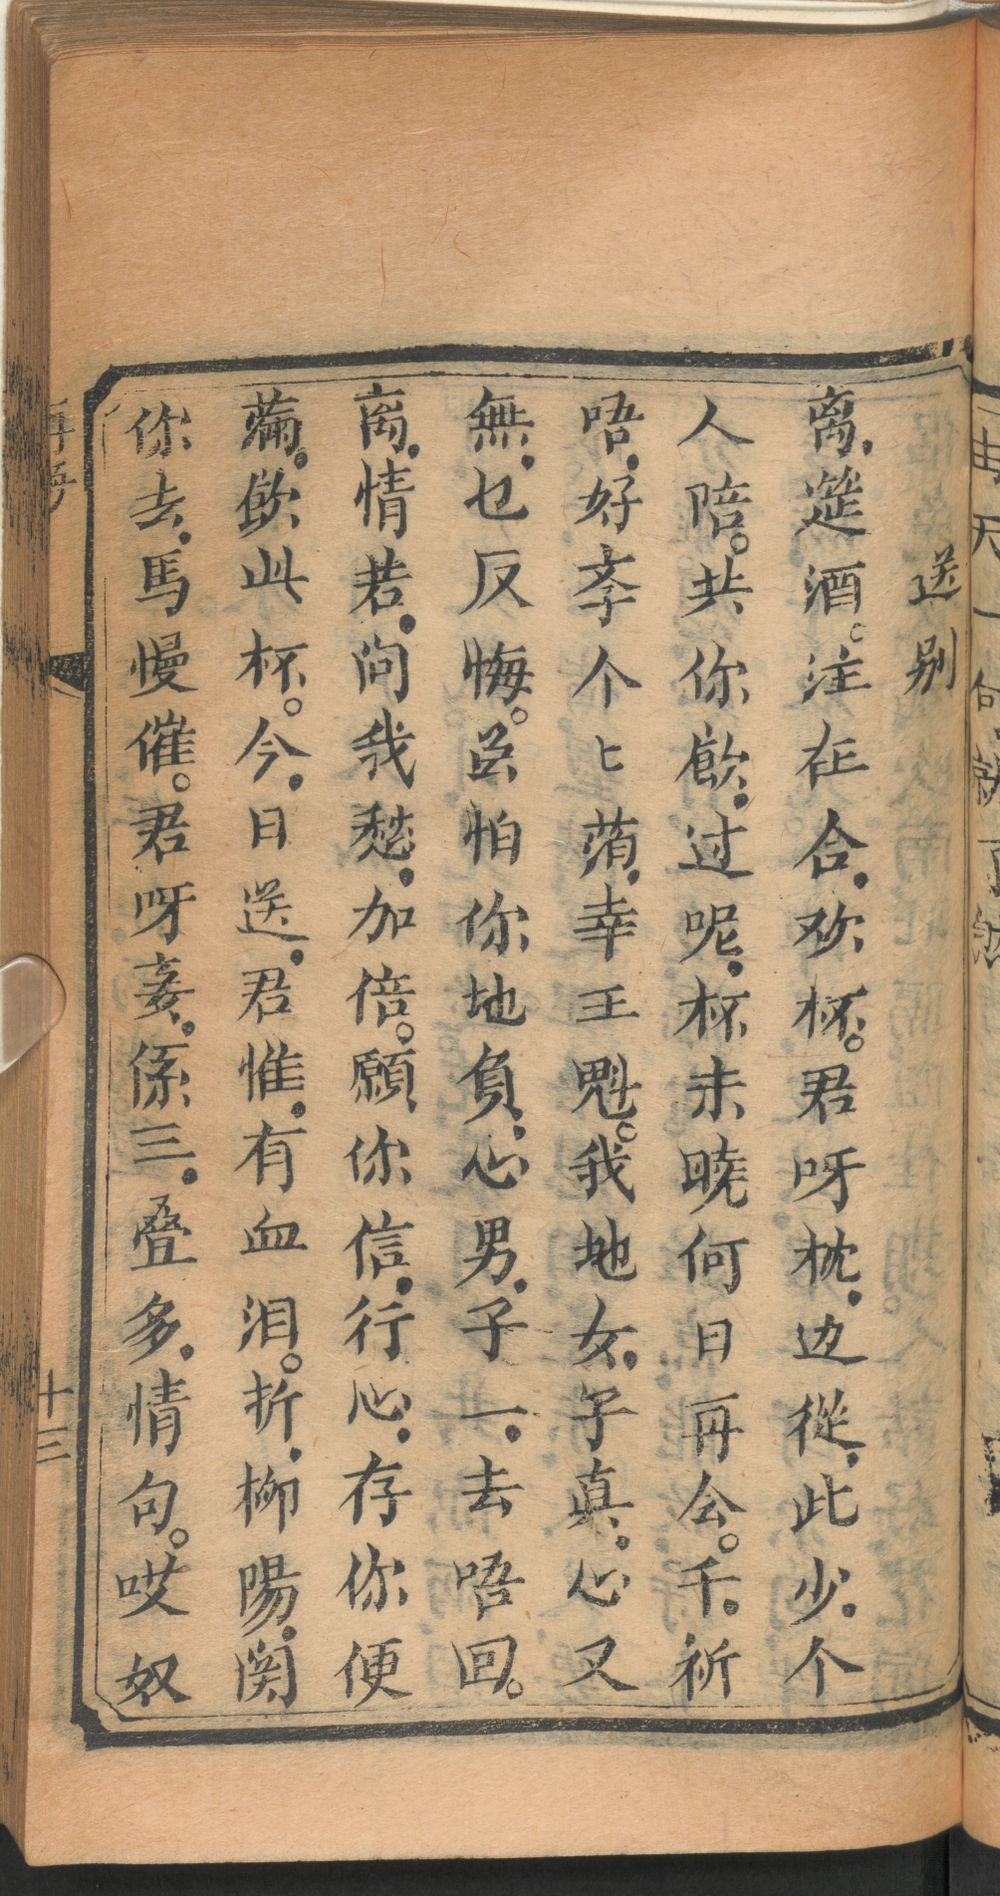 送别
离筵酒。注在合欢杯。君呀枕边從此少个
人陪。共你飲过呢杯未曉何日再会。千祈
唔好孛个匕荫幸王魁。我地女子真心又
無乜反悔。总怕你地負心男子一去唔回。
离情若问我愁加倍。願你信行心存你便
滿飲此杯。今日送君惟有血泪。折柳陽関
你去馬慢催。君呀妾係三叠多情句。哎奴
十三